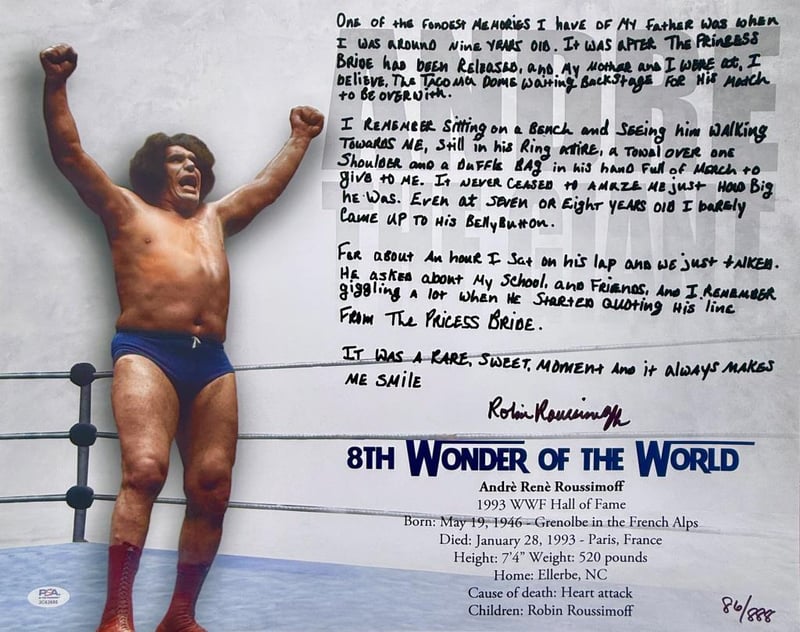 One of the fondest memories I have of my Father was when
I was around nine years old. It was after The Princess
Bride had been Released, and my Mother and I were at, I
believe, The Tacoma Dome waiting Backstage for his Match
to be over with.
I Remember Sitting on a Bench and Seeing him walking
Towards me, Still in his Ring attire, a towel over one
Shoulder and a Duffle Bag in his hand full of Merch to
give to me. It never ceased to amaze me just how Big
he was. Even at seven or Eight years old I barely
came up to his Bellybutton.
For about an hour I Sat on his lap and we just talked.
He asked about my School, and Friends, and I remember
giggling a lot when he started quoting his line
From The Pricess Bride.
It was a rare, sweet, moment and it always makes
me smile
Robin Roussimoff
ANDRE
THE GIANT
8TH WONDER OF THE WORLD
Andrè Renè Roussimoff
1993 WWF Hall of Fame
Born: May 19, 1946 - Grenolbe in the French Alps
Died: January 28, 1993 - Paris, France
Height: 7'4” Weight: 520 pounds
Home: Ellerbe, NC
Cause of death: Heart attack
Children: Robin Roussimoff
PSA
86/888